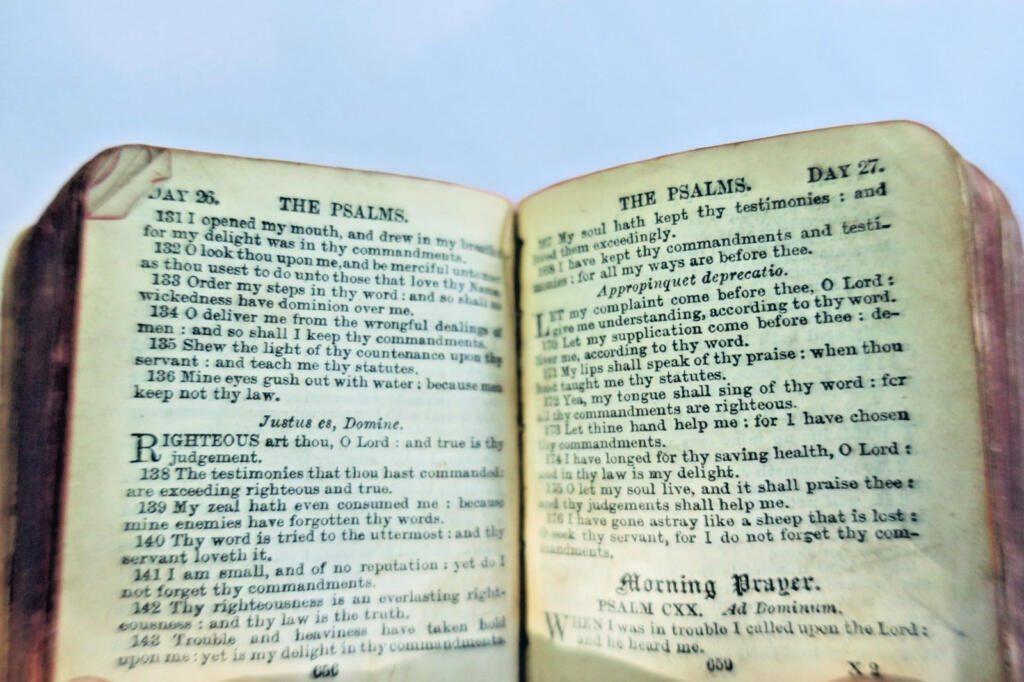 DAY 26.
THE PSALMS.
131 I opened my mouth, and drew in my breath:
for my delight was in thy commandments.
132 O look thou upon me, and be merciful unto me:
as thou usest to do unto those that love thy Name.
133 Order my steps in thy word: and so shall no
wickedness have dominion over me.
134 O deliver me from the wrongful dealings of
men : and so shall I keep thy commandments.
135 Shew the light of thy countenance upon thy
servant : and teach me thy statutes.
136 Mine eyes gush out with water : because men
keep not thy law.
Justus es, Domine.
RIGHTEOUS art thou, O Lord : and true is thy
judgement.
138 The testimonies that thou hast commanded:
are exceeding righteous and true.
139 My zeal hath even consumed me : because
mine enemies have forgotten thy words.
140 Thy word is tried to the uttermost : and thy
servant loveth it.
141 I am small, and of no reputation : yet do I
not forget thy commandments.
142 Thy righteousness is an everlasting right-
eousness : and thy law is the truth.
143 Trouble and heaviness have taken hold
upon me: yet is my delight in thy commandments.
656
THE PSALMS.
DAY 27.
167 My soul hath kept thy testimonies : and
loved them exceedingly.
168 I have kept thy commandments and testi-
monies : for all my ways are before thee.
Appropinquet deprecatio.
LET my complaint come before thee, O Lord :
give me understanding, according to thy word.
170 Let my supplication come before thee : de-
liver me, according to thy word.
171 My lips shall speak of thy praise : when thou
hast taught me thy statutes.
172 Yea, my tongue shall sing of thy word : for
all thy commandments are righteous.
173 Let thine hand help me : for I have chosen
thy commandments.
174 I have longed for thy saving health, O Lord :
and in thy law is my delight.
175 O let my soul live, and it shall praise thee :
and thy judgements shall help me.
176 I have gone astray like a sheep that is lost :
O seek thy servant, for I do not forget thy com-
mandments.
Morning Prayer.
PSALM CXX. Ad Dominum.
WHEN I was in trouble I called upon the Lord :
and he heard me.
659
X 2